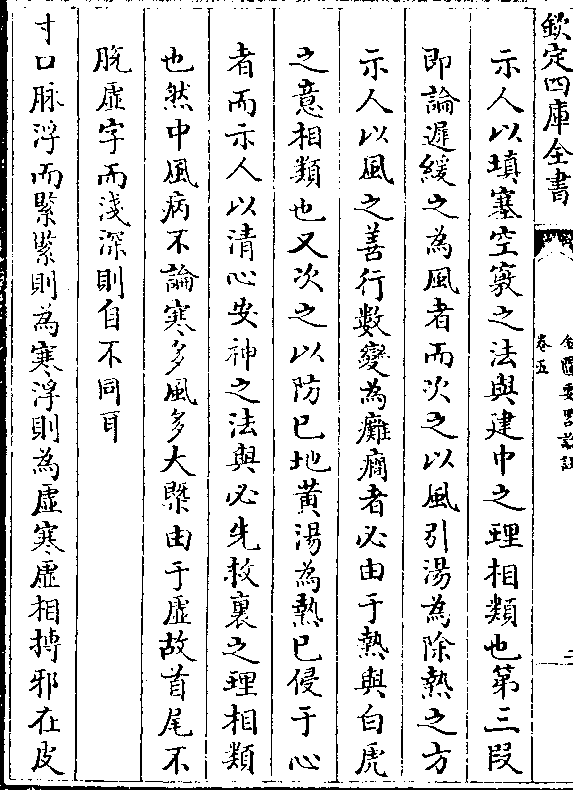 欽定四庫全書
金匱要畧論註
卷五
二
示人以填塞空竅之法與建中之理相類也第三段
即論遲緩之為風者而次之以風引湯為除熱之方
示人以風之善行數變為癱癎者必由于熱與白虎
之意相類也又次之以防已地黃湯為熱已侵于心
者而示人以清心安神之法與必先救裏之理相類
也然中風病不論寒多風多大槩由于虛故首尾不
脫虛字而淺深則自不同耳
寸口脉浮而緊緊則為寒浮則為虛寒虛相搏邪在皮